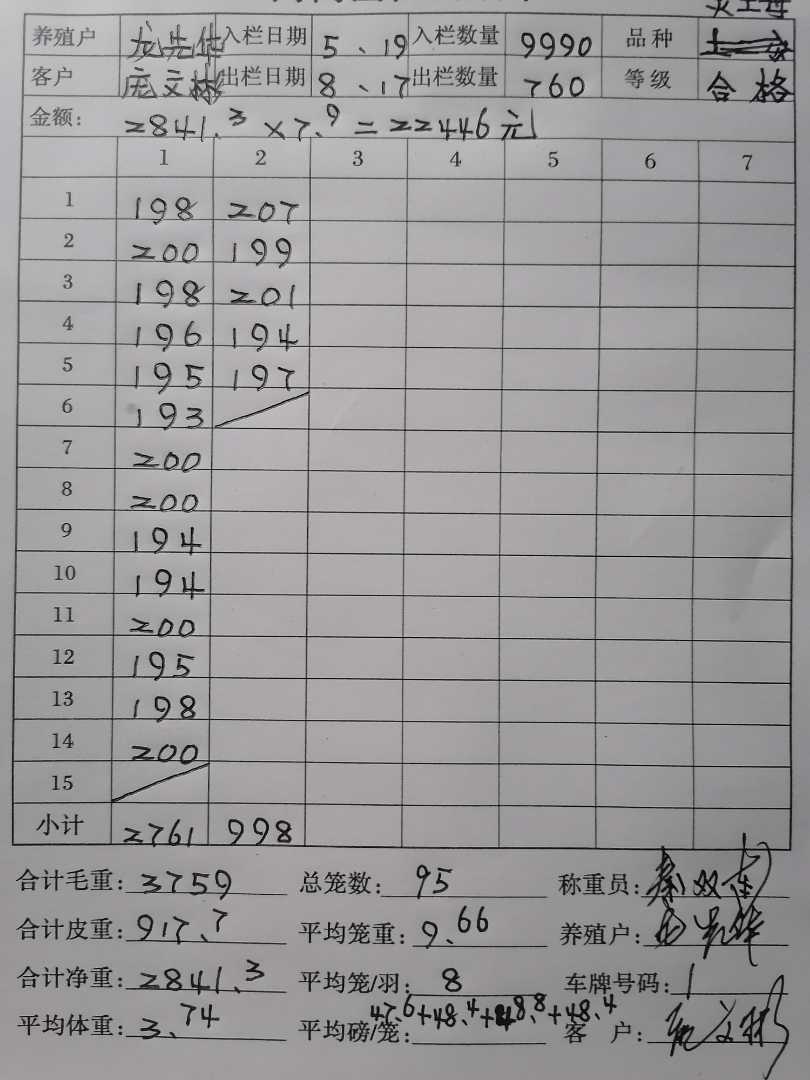 养殖户 龙先华 入栏日期 5、19 入栏数量 9990 品种
客户 庞文彬 出栏日期 8、17 出栏数量 760 等级 合格
金额: 2841.3×7.9=22446元
1 2 3 4 5 6 7
1 198 207
2 200 199
3 198 201
4 196 194
5 195 197
6 193
7 200
8 200
9 194
10 194
11 200
12 195
13 198
14 200
15
小计 2761 998
合计毛重: 3759 总笼数: 95 称重员: 秦双
合计皮重: 917.7 平均笼重: 9.66 养殖户: 龙先华
合计净重: 2841.3 平均笼/羽: 8 车牌号码: 1
平均体重: 3.74 平均磅/笼: 47.6+48.4+48.8+48.4 客户: